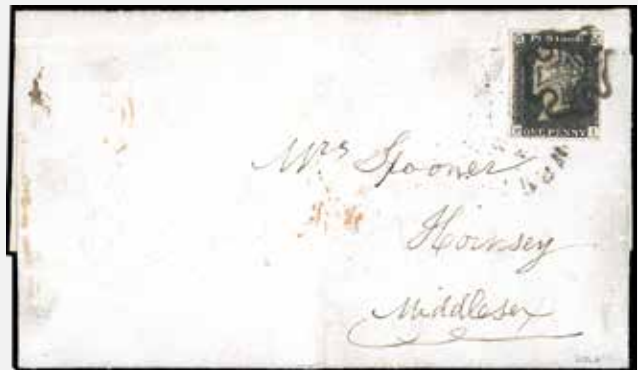 POSTAGE
ONE PENNY
Mrs Spooner
Hornsey
Middlesex